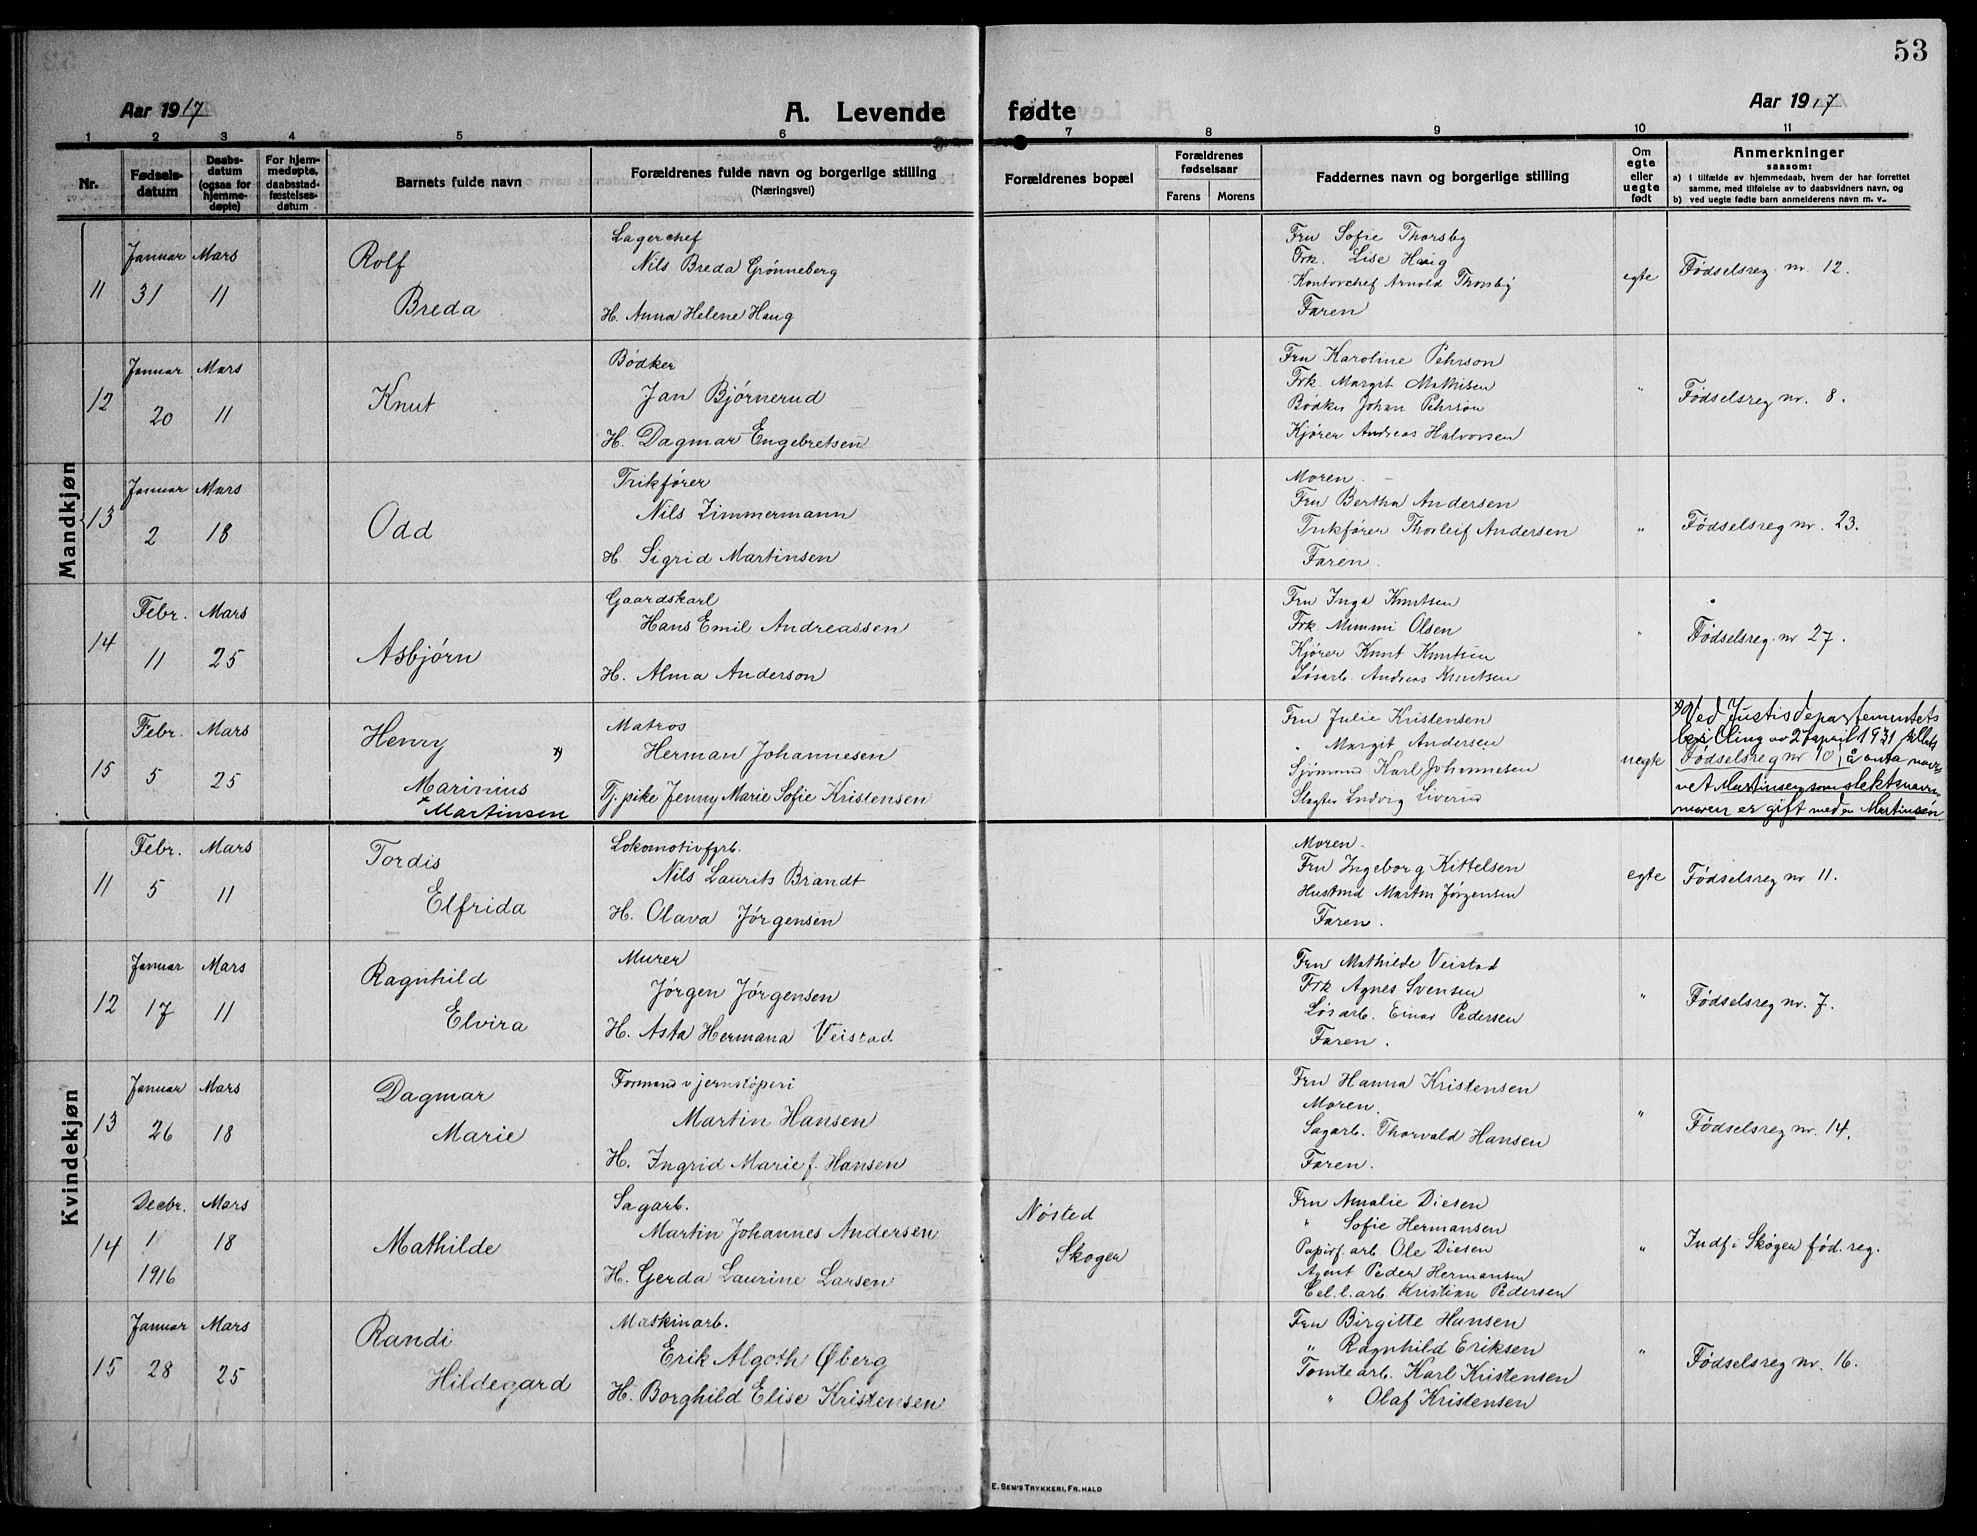 53
Aar 1917
A. Levende fødte
Aar 1917
1 2 3 4 5 6 7 8 9 10 11
Nr.
Fødsels-
datum
Daabs-
datum
(ogsaa for
hjemme-
døpte)
For hjem-
medøpte,
daabsstad-
fæstelses-
datum
Barnets fulde navn
Forældrenes fulde navn og borgerlige stilling
(Næringsvei)
Forældrenes bopæl
Forældrenes
fødselsaar
Farens Morens
Faddernes navn og borgerlige stilling
Om
egte
eller
uegte
født
Anmerkninger
saasom:
a) I tilfælde av hjemmedaab, hvem der har forrettet
samme, med tilføielse av to daabsvidners navn, og
b) ved uegte fødte barn anmelderens navn m. v.
Mandkjøn
11
Januar
31
Mars
11
Rolf
Breda
Lagerchef
Nils Breda Grønneberg
H. Anna Helene Haug
Fru Sofie Thorsby
Frk. Lise Haug
Kontorchef Arnold Thorsby
Faren
egte
Fødselsreg nr. 12.
12
Januar
20
Mars
11
Knut
Bødker
Jan Bjørnerud
H. Dagmar Engebretsen
Fru Karoline Pehrson
Frk. Margit Mathisen
Bødker Johan Pehrson
Kjører Andreas Halvorsen
"
Fødselsreg nr. 8.
13
Januar
2
Mars
18
Odd
Trikfører
Nils Zimmermann
H Sigrid Martinsen
Moren.
Fru Bertha Andersen
Trikfører Thorleif Andersen
Faren.
"
Fødselsreg nr. 23.
14
Febr.
11
Mars
25
Asbjørn
Gaardskarl
Hans Emil Andreassen
H. Alma Anderson
Fru Inga Knutsen
Frk. Mimmi Olsen
Kjører Knut Knutsen
Løsarb. Andreas Knutsen
"
Fødselsreg. nr 27.
15
Febr.
5
Mars
25
Henry x)
Marinius
+ Martinsen
Matros
Herman Johannesen
Tj. pike Jenny Marie Sofie Kristensen
Fru Julie Kristensen
" Margit Andersen
Sjømand Karl Johannesen
Slagter Ludvig Liverud
uegte
x) Ved Justisdepartementets
av 27 april 1931
Fødselsreg nr 10, å anta nav-
vet Martinsen som slektsnavn
moren er gift med en Martinsen
Kvindekjøn
11
Febr.
5
Mars
11
Tordis
Elfrida
Lokomotivfyrb.
Nils Laurits Brandt
H. Olava Jørgensen
Moren.
Fru Ingeborg Kittelsen
Hustru Martin Jørgensen
Faren.
egte
Fødselsreg nr 11.
12
Januar
17
Mars
11
Ragnhild
Elvira
Murer
Jørgen Jørgensen
H. Asta Hermana Veistad
Fru Mathilde Veistad
Frk Agnes Svensen
Løsarb. Einar Pedersen
Faren.
"
Fødselsreg nr. 7.
13
Januar
26
Mars
18
Dagmar
Marie
Formand v jernstøperi
Martin Hansen
H. Ingrid Marie f. Hansen
Fru Hanna Kristensen
Moren.
Sagarb. Thorvald Hansen
Faren.
"
Fødselsreg nr. 14.
14
Decbr.
1
1916
Mars
18
Mathilde
Sagarb.
Martin Johannes Andersen
H. Gerda Laurine Larsen
Nøsted
Skoger
Fru Amalie Diesen
" Sofie Hermansen
Papirf. arb. Ole Diesen
Agent Peder Hermansen
Cel. l. arb. Kristian Pedersen
"
Indf. i Skoger fød. reg.
15
Januar
28
Mars
25
Randi
Hildegard
Maskinarb.
Erik Algoth Øberg
H. Borghild Elise Kristensen
Fru Birgitte Hansen
" Ragnhild Eriksen
Tomtearb. Karl Kristensen
" Olaf Kristensen
"
Fødselsreg nr. 16.
E. SEM'S TRYKKERI, FR.HALD